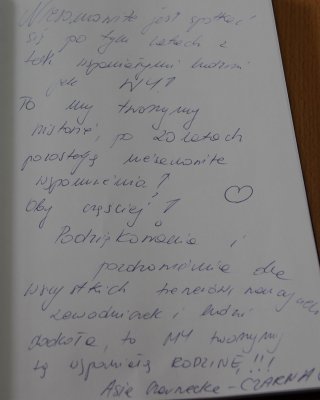 Niesamowite jest spotkać
się po tylu latach z
tak wspaniałymi ludźmi
jak WY!
To my tworzymy
historię, po 20 latach
pozostają niesamowite
wspomnienia!
Oby częściej!
Podziękowania i
pozdrowienia dla
wszystkich trenerów, nauczycieli
zawodniczek i ludzi
dookoła, to MY tworzymy
tą wspaniałą RODZINĘ!!!
Asia Czarnecka - CZARNA